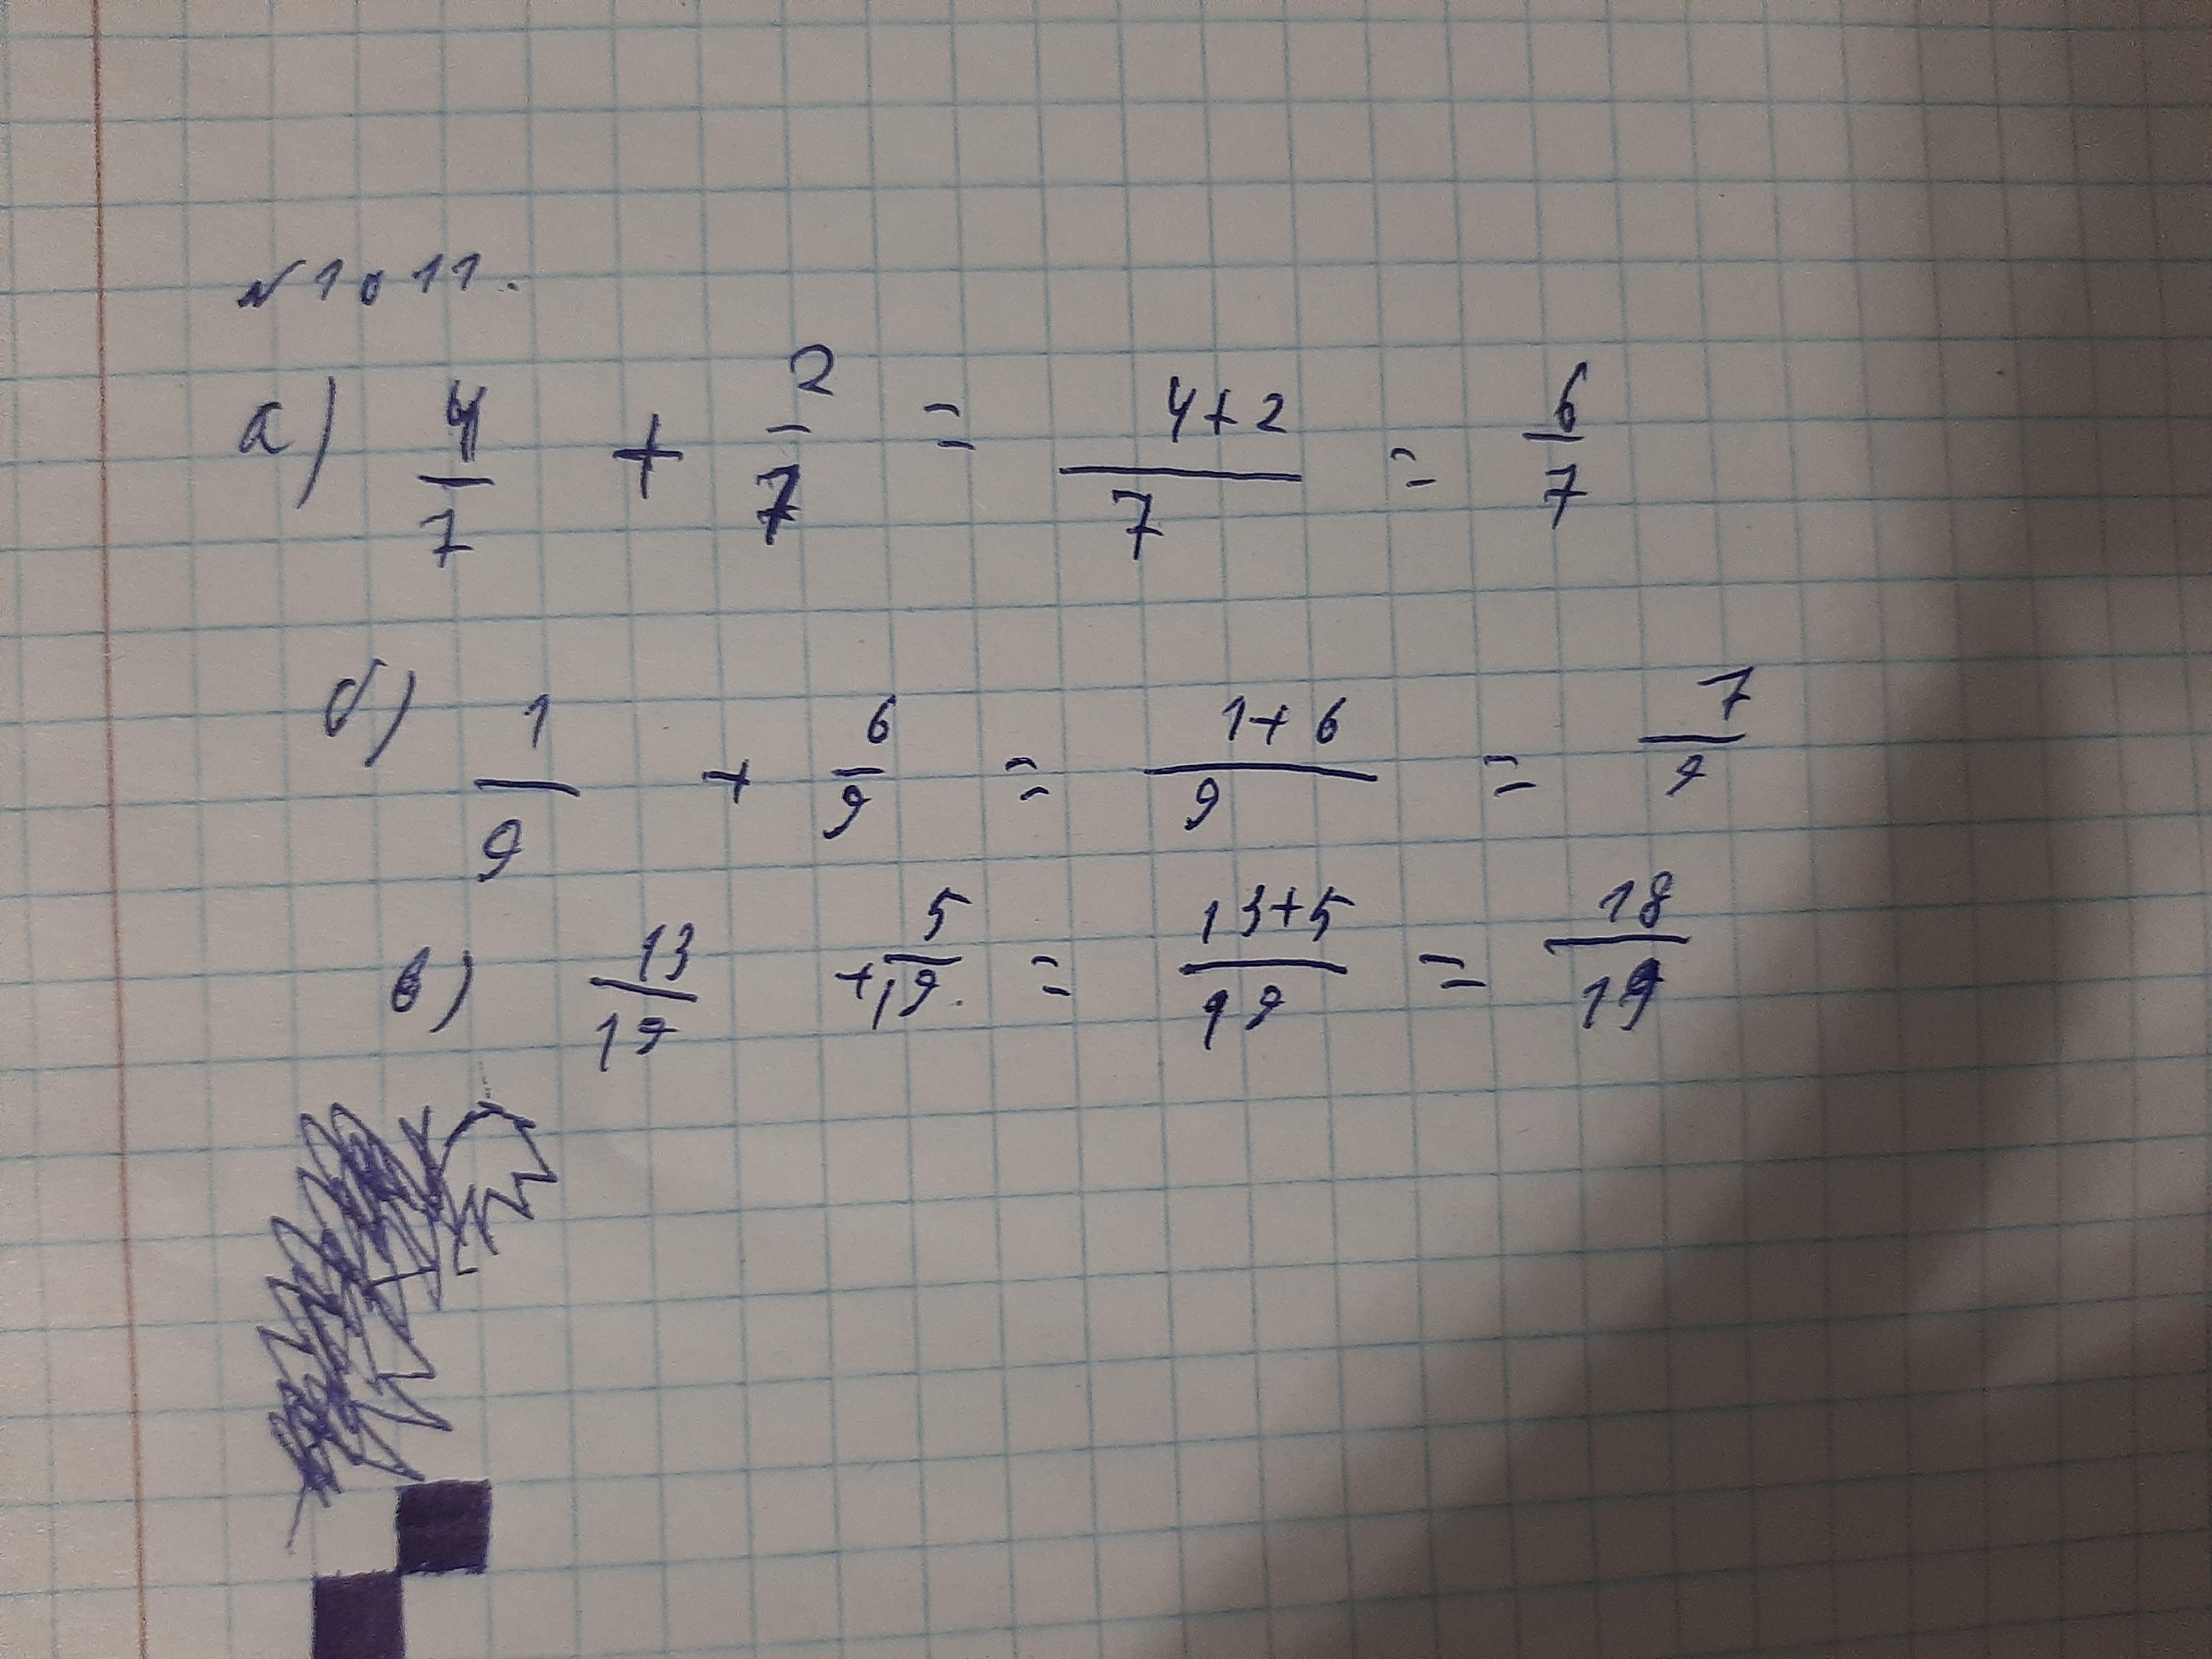 № 1011.
а) 4/7 + 2/7 = 4+2/7 = 6/7
б) 1/9 + 6/9 = 1+6/9 = 7/9
в) 13/19 + 5/19. = 13+5/19 = 18/19